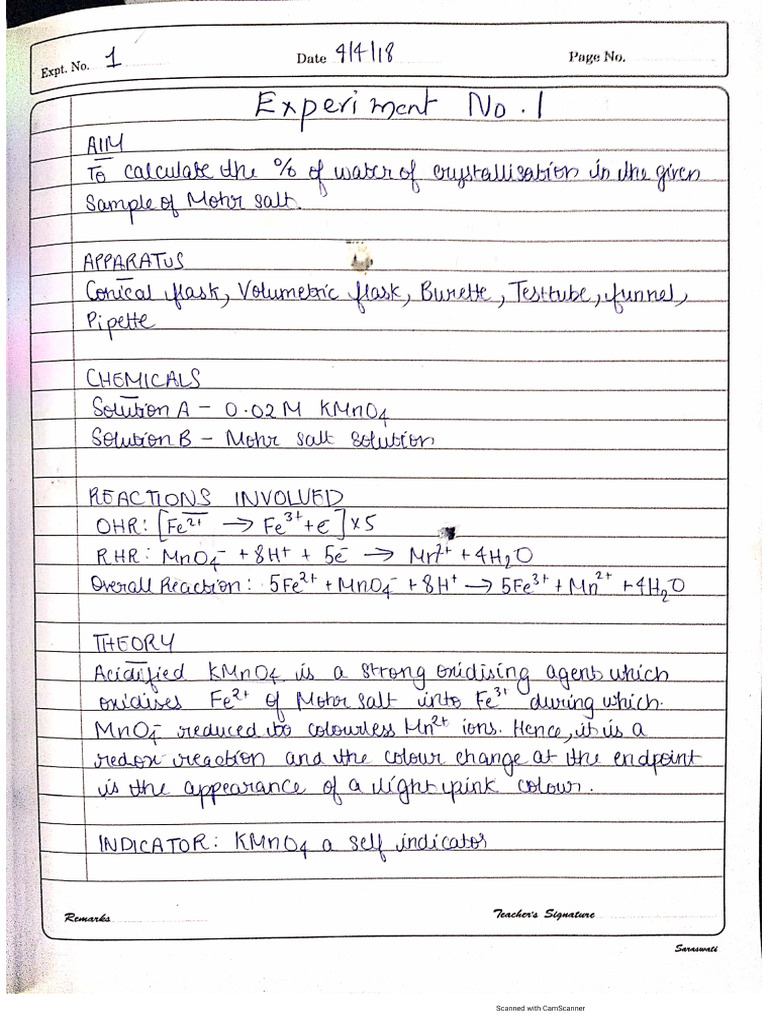 Expt. No. 1 Date 4/4/18 Page No.
Experiment No. 1
AIM
To calculate the % of water of crystallisation in the given
Sample of Mohr salt.
APPARATUS
Conical flask, Volumetric flask, Burette, Testtube, funnel,
Pipette
CHEMICALS
Solution A – 0.02 M KMnO₄
Solution B – Mohr salt solution
REACTIONS INVOLVED
OHR: [Fe²⁺ → Fe³⁺ + e⁻] x 5
RHR: MnO₄⁻ + 8H⁺ + 5e⁻ → Mn²⁺ + 4H₂O
Overall Reaction: 5Fe²⁺ + MnO₄⁻ + 8H⁺ → 5Fe³⁺ + Mn²⁺ + 4H₂O
THEORY
Acidified KMnO₄ is a strong oxidising agent which
oxidises Fe²⁺ of Mohr salt into Fe³⁺ during which.
MnO₄⁻ reduced to colourless Mn²⁺ ions. Hence, it is a
redox reaction and the colour change at the endpoint
is the appearance of a light pink colour.
INDICATOR: KMnO₄ a self indicator
Remarks Teacher's Signature
Saraswati
Scanned with CamScanner